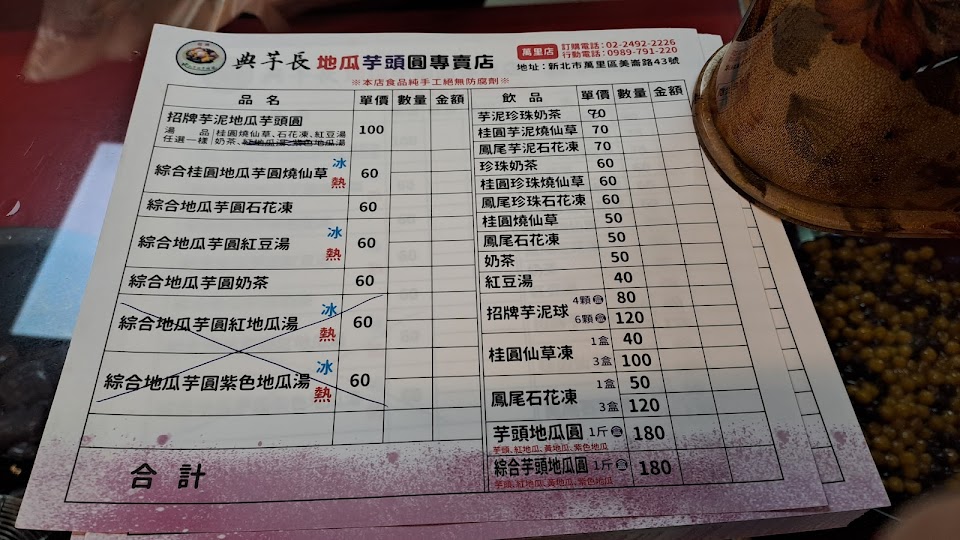 典芋長 地瓜芋頭圓專賣店
萬里店 訂購電話：02-2492-2226
行動電話：0989-791-220
地址：新北市萬里區美崙路43號
※本店食品純手工絕無防腐劑※
品名 單價 數量 金額
招牌芋泥地瓜芋頭圓 100
湯品 桂圓燒仙草、石花凍、紅豆湯
任選一樣 奶茶、紅地瓜湯、紫色地瓜湯
綜合桂圓地瓜芋圓燒仙草 冰 熱 60
綜合地瓜芋圓石花凍 60
綜合地瓜芋圓紅豆湯 冰 熱 60
綜合地瓜芋圓奶茶 60
綜合地瓜芋圓紅地瓜湯 冰 熱 60
綜合地瓜芋圓紫色地瓜湯 冰 熱 60
合計
飲品 單價 數量 金額
芋泥珍珠奶茶 70
桂圓芋泥燒仙草 70
鳳尾芋泥石花凍 70
珍珠奶茶 60
桂圓珍珠燒仙草 60
鳳尾珍珠石花凍 60
桂圓燒仙草 50
鳳尾石花凍 50
奶茶 50
紅豆湯 40
招牌芋泥球 4顆盒 80
6顆盒 120
桂圓仙草凍 1盒 40
3盒 100
鳳尾石花凍 1盒 50
3盒 120
芋頭地瓜圓 1斤 180
芋頭、紅地瓜、黃地瓜、紫色地瓜
綜合芋頭地瓜圓 1斤 180
芋頭、紅地瓜、黃地瓜、紫色地瓜